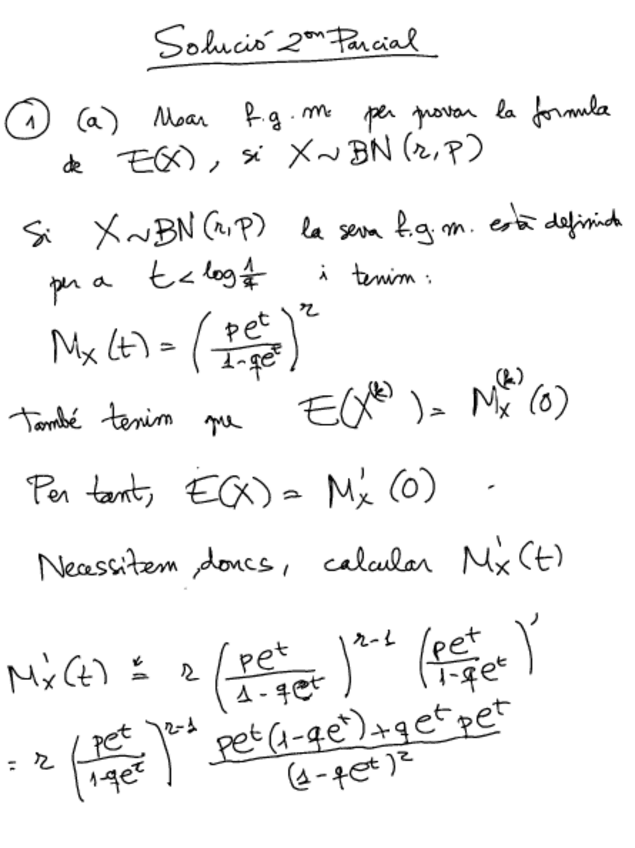 Solució 2on Parcial
① (a) Usar f.g.m per provar la formula
de E(X), si X ~ BN(r,p)
Si X ~ BN(r,p) la seva f.g.m. està definida
per a t < log 1/q i tenim:
M_X(t) = (pe^t / (1-qe^t))^r
També tenim que E(X^(k)) = M_X^(k)(0)
Per tant, E(X) = M_X'(0)
Necessitem, doncs, calcular M_X'(t)
M_X'(t) = r (pe^t / (1-qe^t))^(r-1) (pe^t / (1-qe^t))'
= r (pe^t / (1-qe^t))^(r-1) (pe^t(1-qe^t)+qe^t pe^t) / (1-qe^t)^2